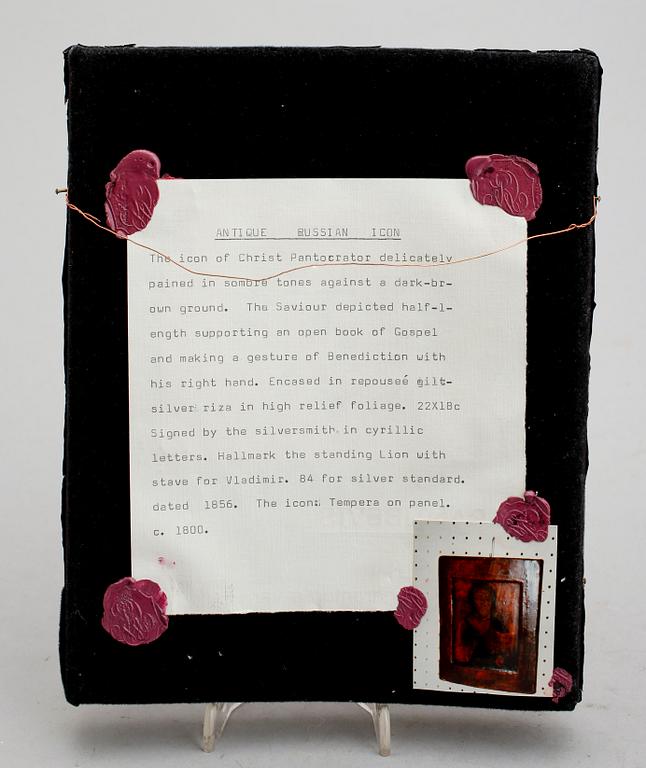 ANTIQUE RUSSIAN ICON
The icon of Christ Pantocrator delicately
pained in sombre tones against a dark-br-
own ground. The Saviour depicted half-l-
ength supporting an open book of Gospel
and making a gesture of Benediction with
his right hand. Encased in repouseé gilt-
silver riza in high relief foliage. 22X18c
Signed by the silversmith in cyrillic
letters. Hallmark the standing Lion with
stave for Vladimir. 84 for silver standard.
dated 1856. The icon: Tempera on panel.
c. 1800.